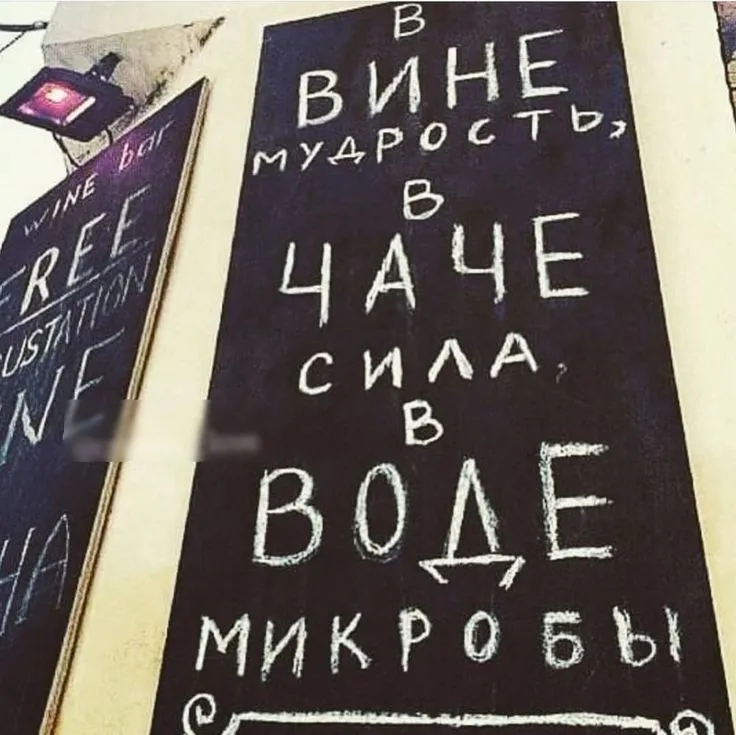 WINE bar
FREE
WINE
В
ВИНЕ
МУДРОСТЬ,
В
ЧАЧЕ
СИЛА,
В
ВОДЕ
МИКРОБЫ